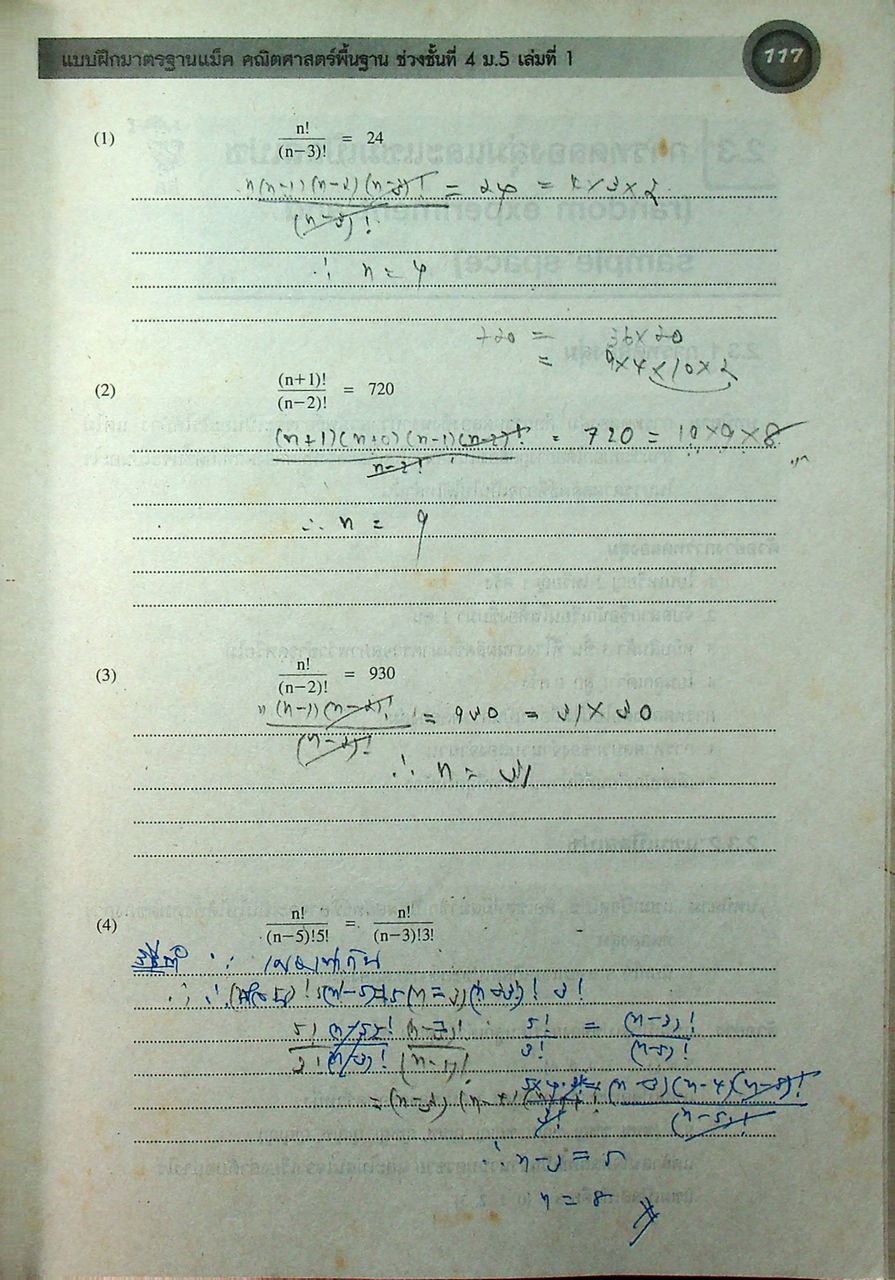 แบบฝึกมาตรฐานแม็ค คณิตศาสตร์พื้นฐาน ช่วงชั้นที่ 4 ม.5 เล่มที่ 1
117
(1) n!/(n−3)! = 24
n(n-1)(n-2)(n-3)!/(n-3)! = 24 = 4×3×2
∴ n = 4
720 = 36×20
= 9×4×10×2
(2) (n+1)!/(n−2)! = 720
(n+1)(n+0)(n-1)(n-2)!/n-2! = 720 = 10×9×8
∴ n = 9
(3) n!/(n−2)! = 930
n(n-1)(n-2)!/(n-2)! = 930 = 31×30
∴ n = 31
(4) n!/(n−5)!5! = n!/(n−3)!3!
วิธีทำ ∵ เศษเท่ากัน
5!/3! = (n-3)!/(n-5)!
(n-3)(n-4)(n-5)!/(n-5)!
∴ n-3 = 5
n = 8